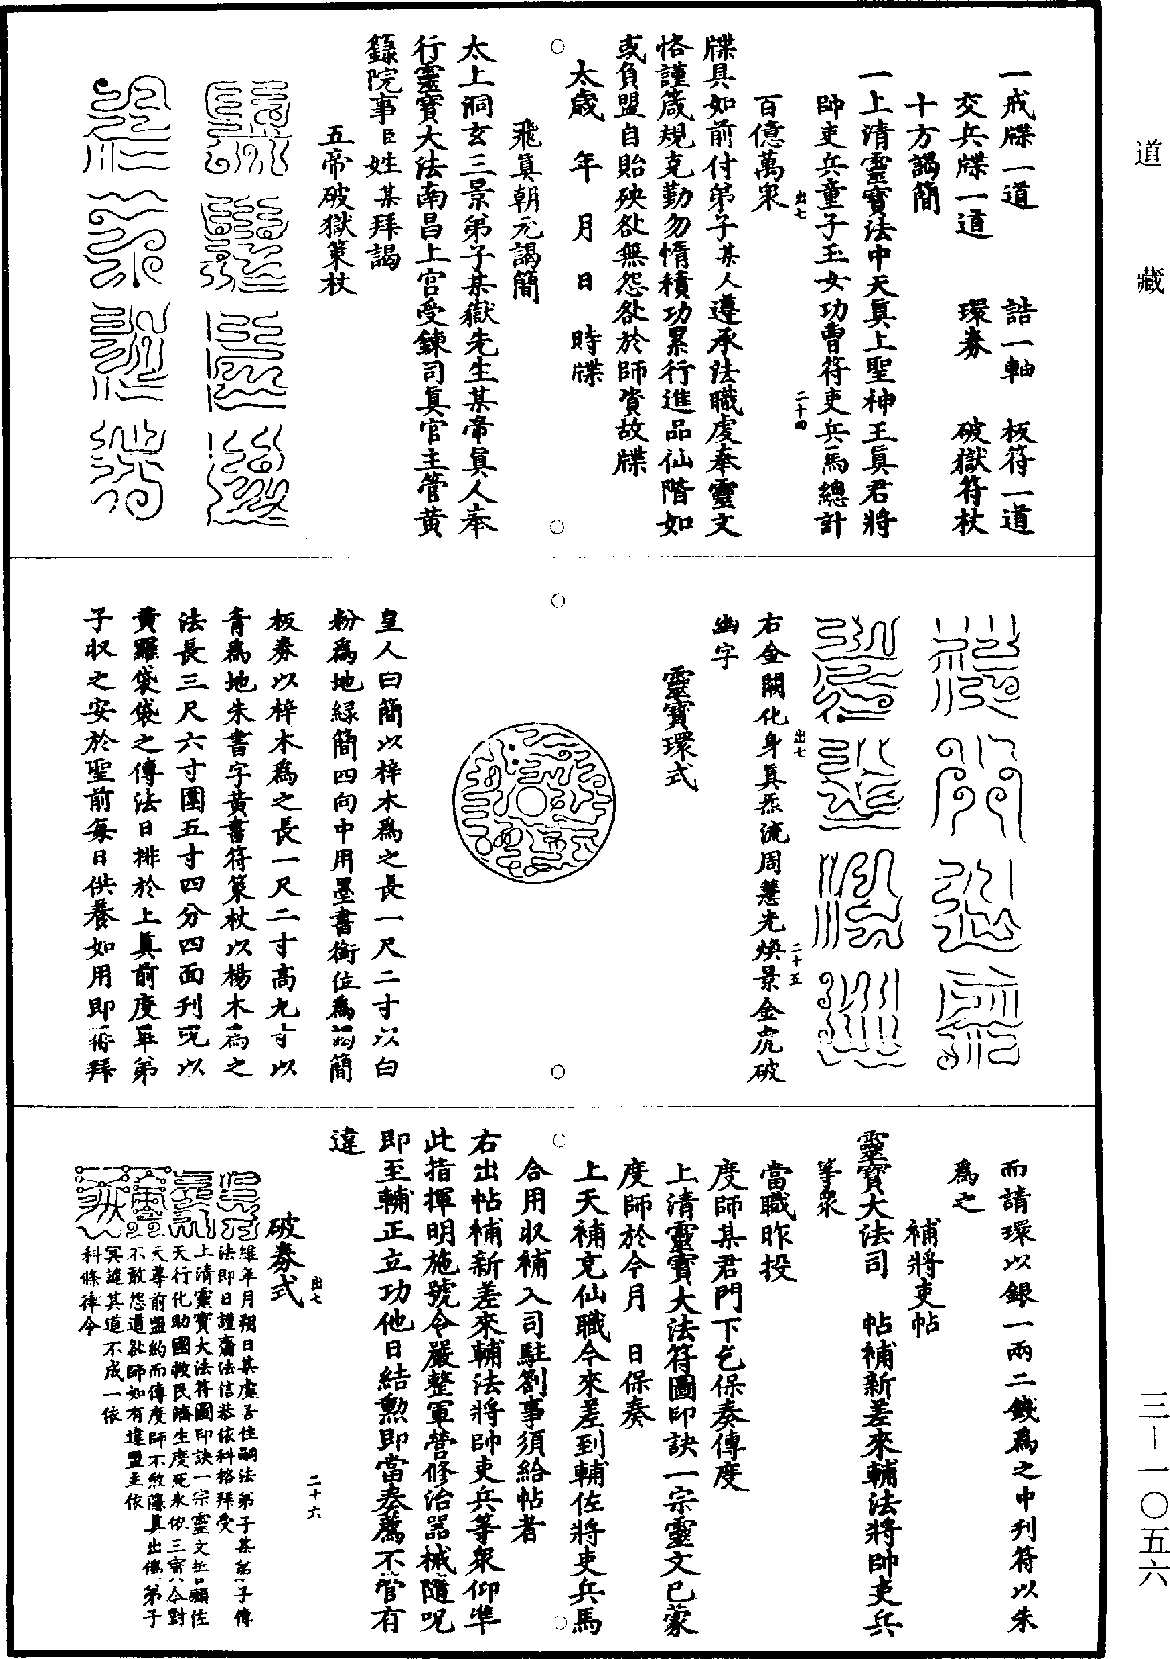 道藏
一戒牒一道　誥一軸　板符一道
交兵牒一道　環券　破獄符杖
十方謁簡
一上清靈寶法中天真上聖神王真君將
帥吏兵童子玉女功曹符吏兵馬總計
百億萬眾
出七　二十四
牒具如前付弟子某人遵承法職虔奉靈文
恪謹箴規克勤勿惰積功累行進品仙階如
或負盟自貽殃咎無怨咎於師資故牒
太歲　年　月　日　時牒
飛真朝元謁簡
太上洞玄三景弟子某嶽先生某帝真人奉
行靈寶大法南昌上宮受鍊司真官主管黃
籙院事臣姓某拜謁
五帝破獄策杖
右金闕化身真炁流周慧光煥景金虎破
幽字
出七　二十五
靈寶環式
皇人曰簡以梓木為之長一尺二寸以白
粉為地緑簡四向中用墨書銜位為謁簡
板券以梓木為之長一尺二寸高九寸以
青為地朱書字黃書符策杖以楊木為之
法長三尺六寸圍五寸四分四面刊咒以
黃羅袋袋之傳法日排於上真前度畢弟
子收之安於聖前每日供養如用即蓺拜
而請環以銀一兩二錢為之中刋符以朱
為之
補將吏帖
靈寶大法司　帖補新差來輔法將帥吏兵
等眾
當職昨投
度師某君門下乞保奏傳度
上清靈寶大法符圖印訣一宗靈文已蒙
度師於今月　日保奏
上天補充仙職今來差到輔佐將吏兵馬
合用収補入司駐劄事須給帖者
右出帖補新差來輔法將帥吏兵等眾仰準
此指揮明施號令嚴整軍營修治器械隨呪
即至輔正立功他日結勲即當奏薦不管有
違
破券式
出七　二十六
維年月朔日某處居住嗣法弟子某弟子傳
法即日謹齎法信恭依科格拜受
上清靈寶大法符圖印訣一宗靈文誓願佐
天行化助國救民濟生度死永依三寶今對
天尊前盟約而傳度師不敢隱真出偽弟子
不敢怨道咎師如有違盟並依
冥道其道不成一依
科條律令
三—一〇五六